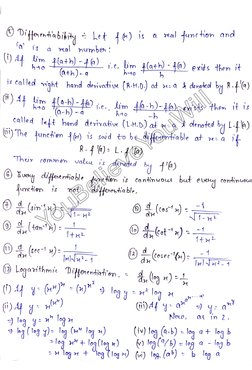 ⑤ Differentiability ÷ Let f(x) is a real function and
'a' is a real number:
(i) If lim h→0 f(a+h) - f(a) / (a+h) - a i.e. lim h→0 f(a+h) - f(a) / h exists then it
is called right hand derivative (R.H.D.) at x=a & denoted by R.f'(a)
(ii) If lim h→0 f(a-h) - f(a) / (a-h) - a i.e. lim h→0 f(a-h) - f(a) / -h exists then it is
called left hand derivative (L.H.D.) at x=a & denoted by L.f'(a)
(iii) The function f(x) is said to be differentiable at x=a if
R.f'(a) = L.f'(a)
Their common value is denoted by f'(a)
⑥ Every differentiable function is continuous but every continuous
function is not differentiable.
⑦ d/dx (sin⁻¹x) = 1/√1-x² ⑧ d/dx (cos⁻¹x) = -1/√1-x²
⑨ d/dx (tan⁻¹x) = 1/1+x² ⑩ d/dx (cot⁻¹x) = -1/1+x²
⑪ d/dx (sec⁻¹x) = 1/|x|√x²-1 ⑫ d/dx (cosec⁻¹x) = -1/|x|√x²-1
⑬ Logarithmic Differentiation. = d/dx (log x) = 1/x
(i) If y = (xˣ)ˣ = (x)ˣ² ⇒ log y = x² log x
(ii) If y = x^(xˣ) (iii) If y = ⇒ y =
⇒ log y = xˣ log x Now, as in 2.
⇒ log(log y) = log(xˣ log x) (iv) log(a·b) = log a + log b
= log xˣ + log(log x) (v) log(a/b) = log a - log b
= x log x + log(log x) (vi) log(aᵇ) = b log a
YouSolveYouWill